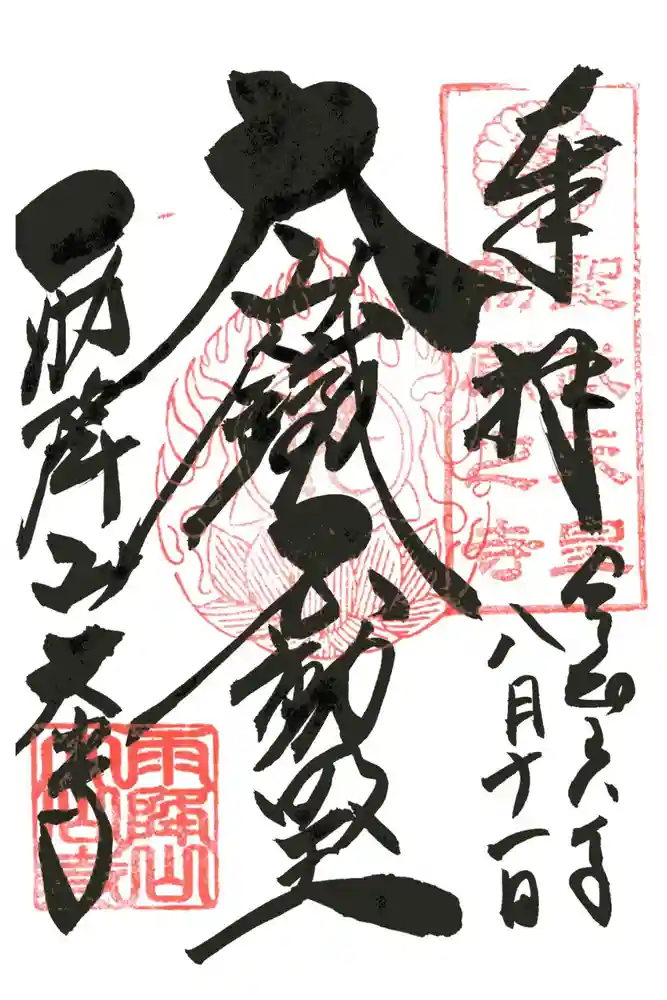 奉拝
聖武天皇
勅願之寺
令和 年
八月十一日
大鐵不動明王
雨降山大山寺
雨降山
大山寺